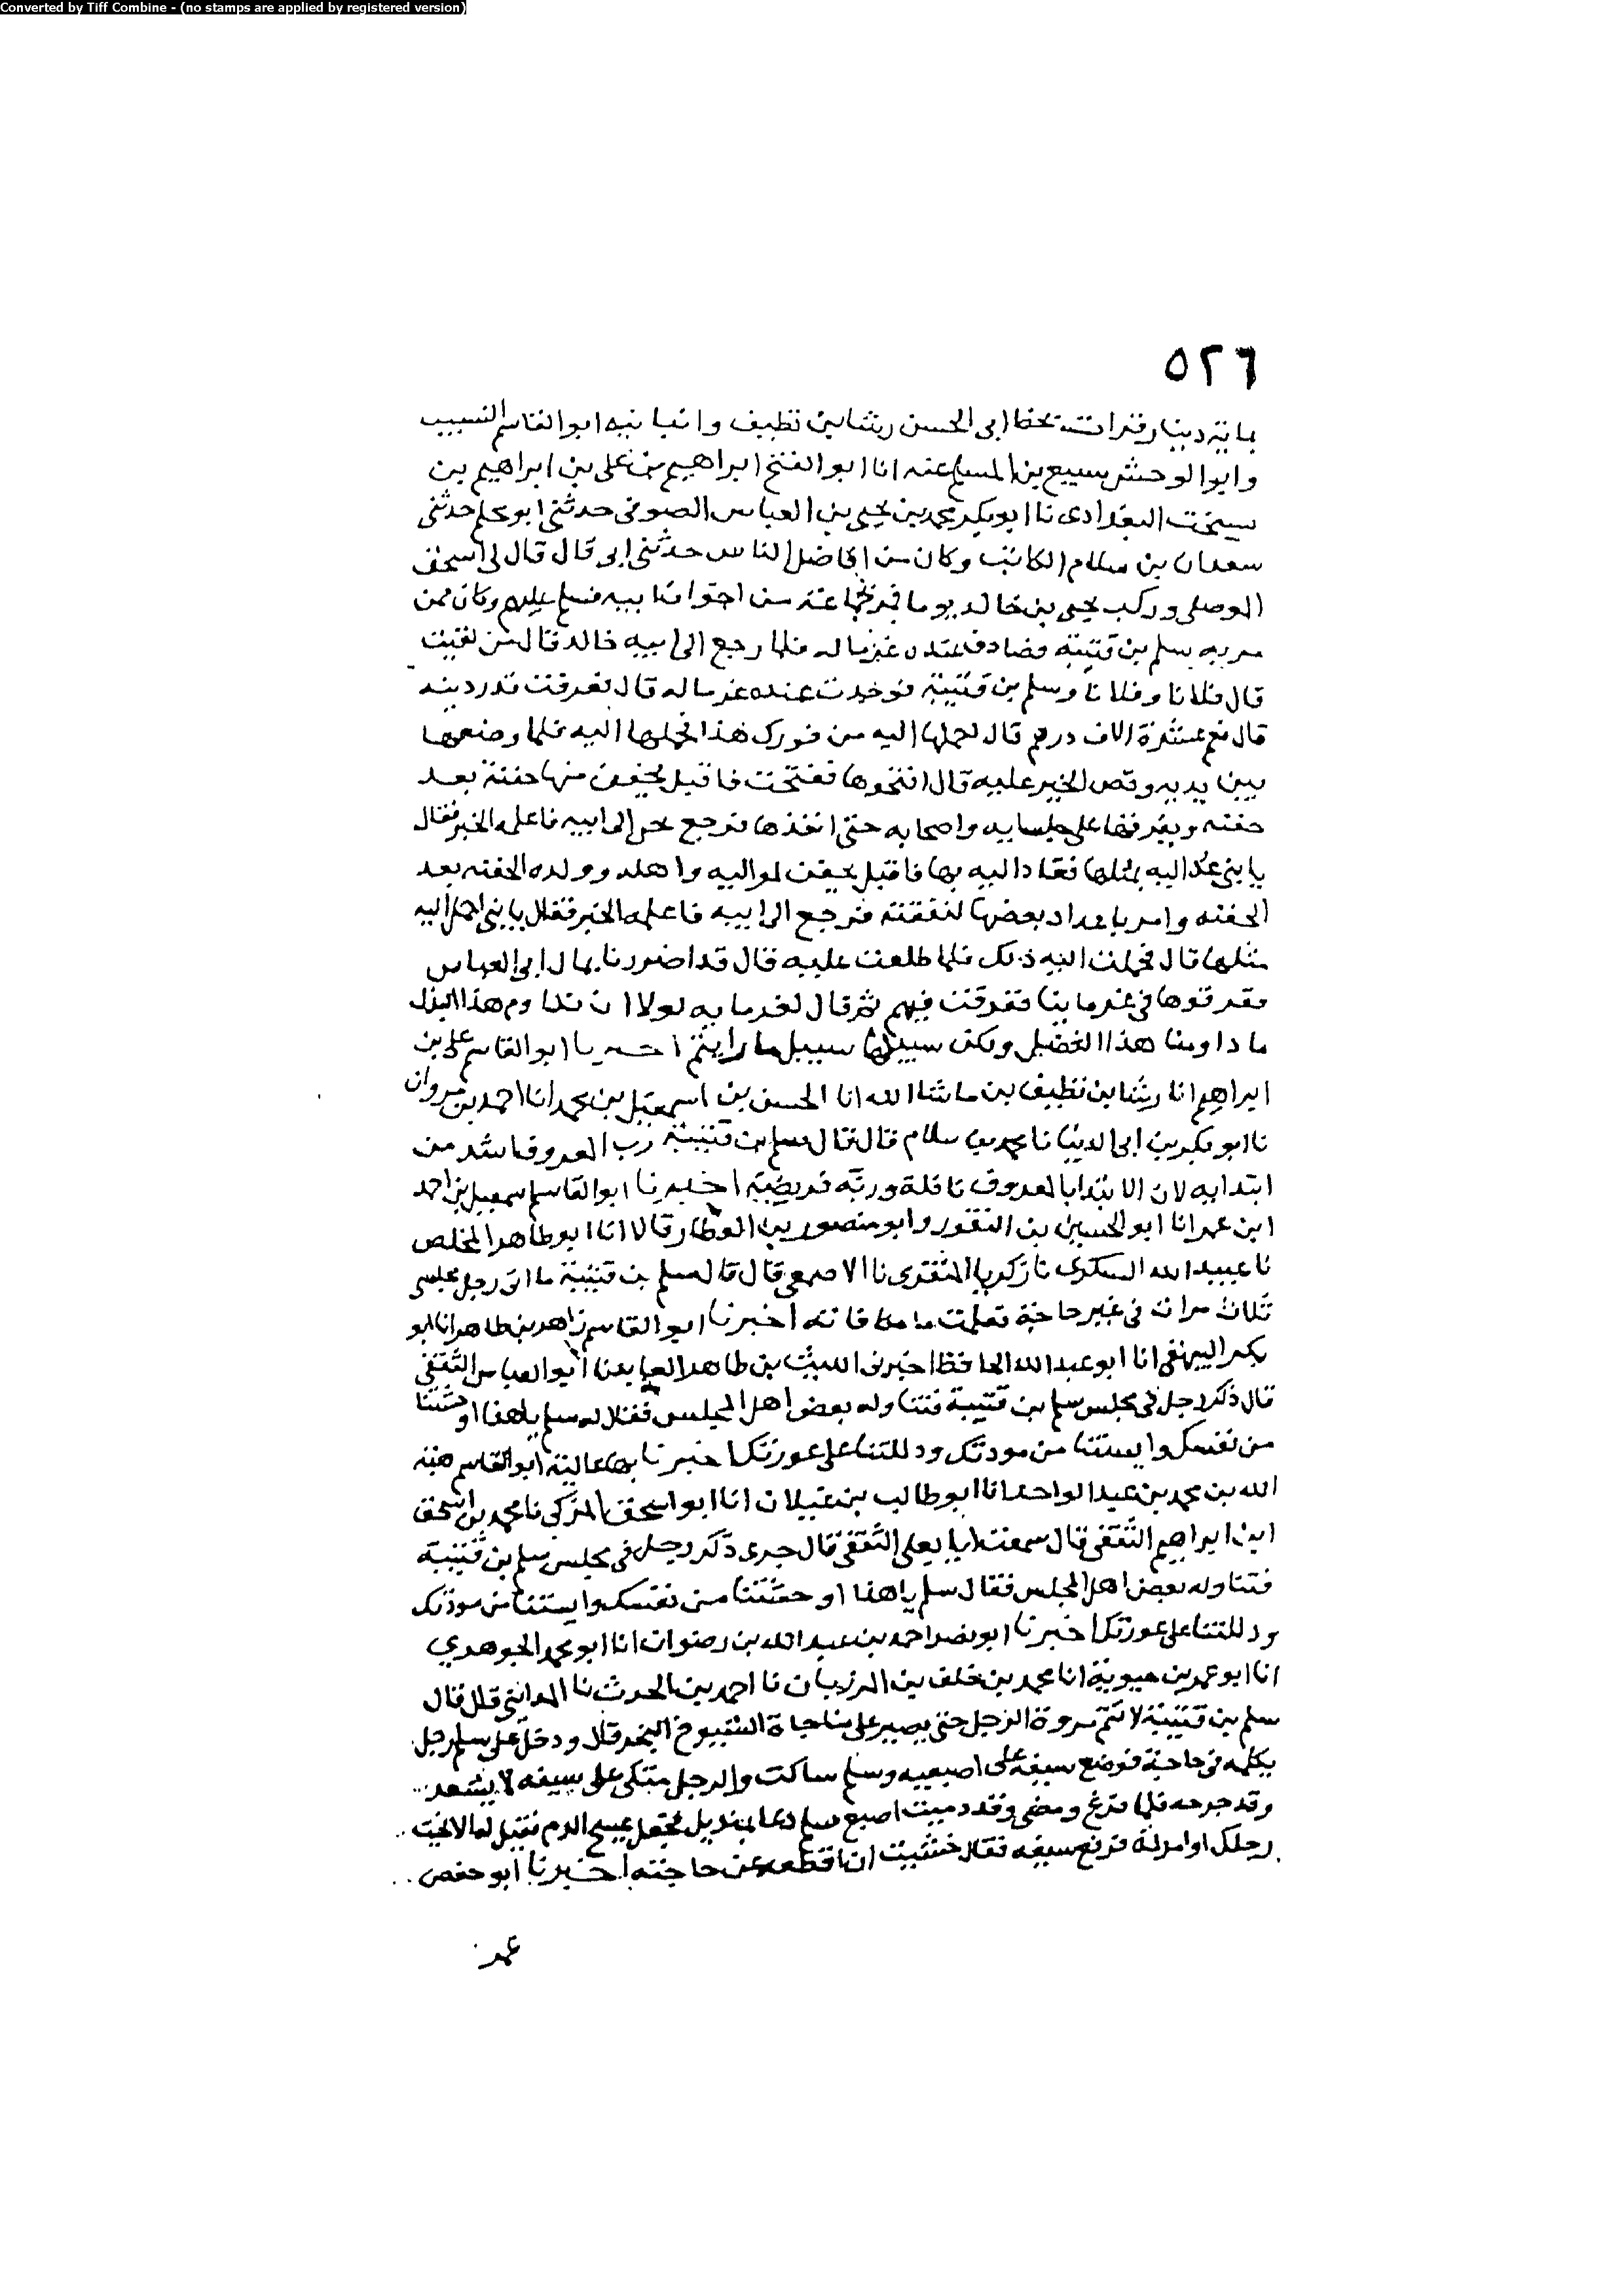 Converted by Tiff Combine - (no stamps are applied by registered version)
٥٢٦
بماية دينار قرات بخط ابى الحسن رشا بن نظيف وانبا نيه ابو القاسم النسيب
وابو الوحش سبيع بن المسلم عنه انا ابو الفتح ابراهيم بن على بن ابراهيم بن
سيخت البغدادى نا ابو بكر محمد بن يحيى بن العباس الصولى حدثنى ابو محلم حدثنى
سعدان بن سلام الكاتب وكان من افاضل الناس حدثنى ابى قال قال لى اسحق
الموصلى وركب يحيى بن خالد يوما فمر بجماعة من اخوان ابيه فسلم عليهم وكان ممن
مر به سلم بن قتيبة فصادف عنده غرماله فلما رجع الى ابيه خالد قال من لقيت
قال فلانا وفلانا وسلم بن قتيبة فوجدت عنده غرماله قال تعرفت قدر دينه
قال نعم عشرة الاف درهم قال احملها اليه من فورك هذا فحملها اليه فلما وضعها
بين يديه وقص الخبر عليه قال افتحوها ففتحت فاقبل يحفن منها حفنة بعد
حفنه ويفرقها على جلسايه واصحابه حتى انفذها فرجع يحيى الى ابيه فاعلمه الخبر فقال
يا بنى عد اليه بمثلها فعاد اليه بها فاقبل يحفن لمواليه واهله وولده الحفنه بعد
الحفنه وامر باعداد بعضها لنفقته فرجع الى ابيه فاعلمه الخبر فقال يا بنى احمل اليه
مثلها قال فحملت اليه ذلك فلما طلعت عليه قال قد اضررنا بمال ابى العباس
ففرقوها فى غرماينا ففرقت فيهم ثم قال لغرمايه لولا ان تداوم هذا البذل
ما داومنا هذا الفضل ولكن سبيلها سبيل ما رايتم اخبرنا ابو القاسم على بن
ابراهيم انا رشا بن نظيف بن ماشا الله انا الحسن بن اسمعيل بن محمد انا احمد بن مروان
نا ابو بكر بن ابى الدنيا نا محمد بن سلام قال قال سلم بن قتيبة رب المعروف اشد من
ابتدايه لان الابتدا بالمعروف نافلة وربه فريضة اخبرنا ابو القاسم اسمعيل بن احمد
ابن عمر انا ابو الحسين بن النقور وابو منصور بن العطار قالا انا ابو طاهر المخلص
نا عبيد الله السكرى نا زكريا المنقرى نا الاصمعى قال قال سلم بن قتيبة ما اتى رجل مجلسى
ثلاث مرات فى غير حاجة فعلمت ما مكافاته اخبرنا ابو القاسم زاهر بن طاهر انا ابو
بكر البيهقى انا ابو عبد الله الحافظ اخبرنى الليث بن طاهر العابد نا ابو العباس الثقفى
قال ذكر رجل فى مجلس سلم بن قتيبة فتناوله بعض اهل المجلس فقال له سلم يا هذا اوحشتنا
من نفسك وايستنا من مودتك ودللتنا على عورتك اخبرنا بها عالية ابو القاسم هبة
الله بن محمد بن عبد الواحد انا ابو طالب بن غيلان انا ابو اسحق المزكى نا محمد بن اسحق
ابن ابراهيم الثقفى قال سمعت ابا يعلى الثقفى قال جرى ذكر رجل فى مجلس سلم بن قتيبة
فتناوله بعض اهل المجلس فقال سلم يا هذا اوحشتنا من نفسك وايستنا من مودتك
ودللتنا على عورتك اخبرنا ابو نصر احمد بن عبد الله بن رضوان انا ابو محمد الجوهري
انا ابو عمر بن حيوية انا محمد بن خلف بن المرزبان نا احمد بن الحرث نا المداينى قال قال
سلم بن قتيبة لا تتم مروة الرجل حتى يصبر على مناجاة الشيوخ البخر قال ودخل على سلم رجل
يكلمه فى حاجة فوضع سيفه على اصبعيه وسلم ساكت والرجل متكى على سيفه لا يشعر
وقد جرحه فلما فرغ ومضى وقد دميت اصبع سلم دعا بمنديل فجعل يمسح الدم فقيل له الا نحيت
رجلك او امرته فرفع سيفه فقال خشيت ان اقطعه عن حاجته اخبرنا ابو حفص
عمر